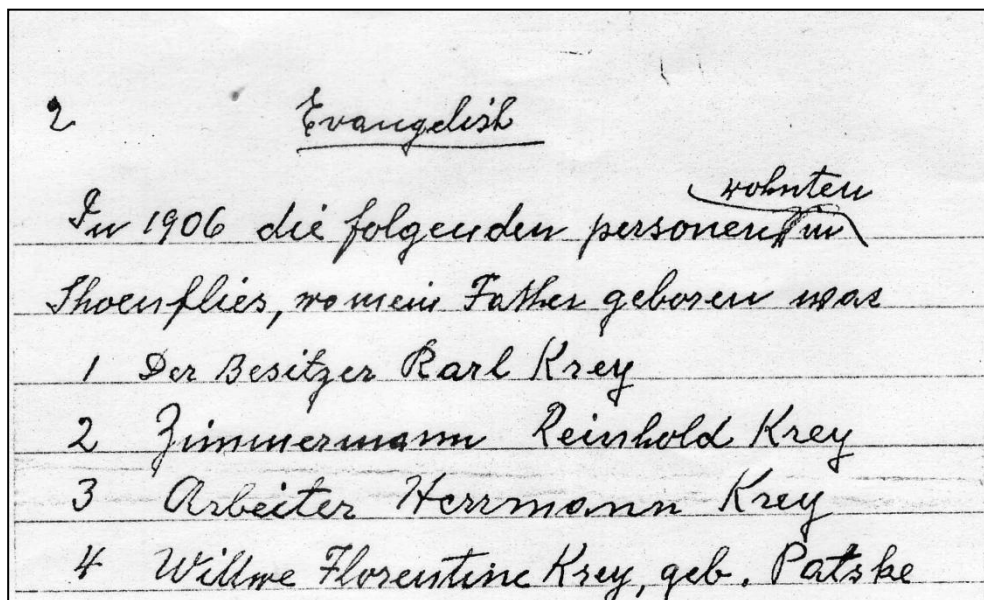 2 Evangelish
wohnten
In 1906 die folgenden personen in
Shoenflies, wo mein Father geboren war
1 Der Besitzer Karl Krey
2 Zimmermann Reinhold Krey
3 Arbeiter Herrmann Krey
4 Willwe Florentine Krey, geb. Patske